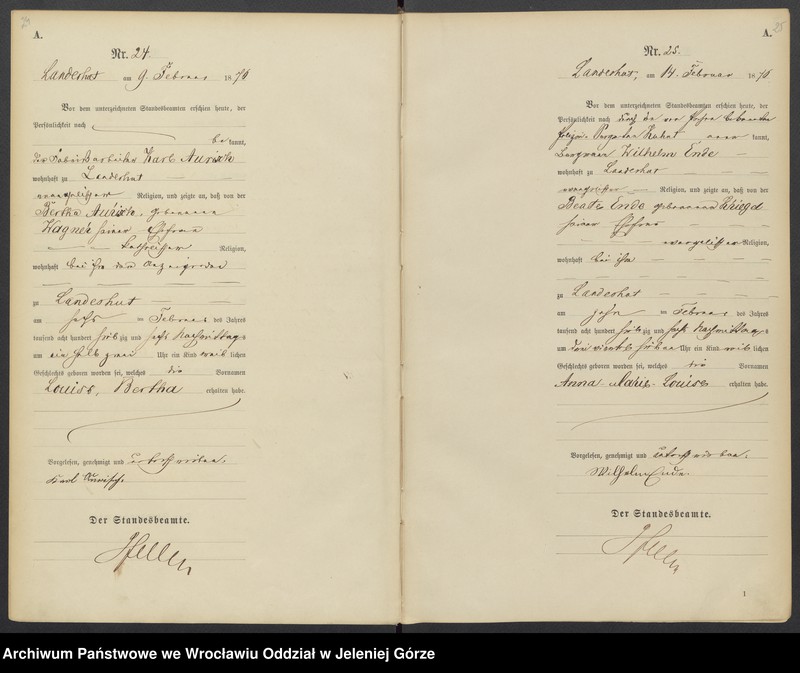 24
A.
Nr. 24.
Landeshut am 9. Februar 1876
Vor dem unterzeichneten Standesbeamten erschien heute, der
Persönlichkeit nach
be kannt,
der Fabrikarbeiter Karl
wohnhaft zu Landeshut
evangelischer Religion, und zeigte an, daß von der
Bertha geborenen
Wagner seiner Ehefrau
katholischer Religion,
wohnhaft bei ihm dem Anzeigenden
zu Landeshut
am sechs ten Februar des Jahres
tausend acht hundert siebzig und sechs Nachmittags
um ein halb zwei Uhr ein Kind weib lichen
Geschlechts geboren worden sei, welches die Vornamen
Louise, Bertha erhalten habe.
Vorgelesen, genehmigt und unterschrieben.
Karl
Der Standesbeamte.
25
A.
Nr. 25.
Landeshut, am 14. Februar 1876
Vor dem unterzeichneten Standesbeamten erschien heute, der
Persönlichkeit nach durch den
kannt,
Wilhelm Ende
wohnhaft zu Landeshut
evangelischer Religion, und zeigte an, daß von der
Beate Ende geborenen Kriegel
seiner Ehefrau
evangelischer Religion,
wohnhaft bei ihm
zu Landeshut
am zehn ten Februar des Jahres
tausend acht hundert siebzig und sechs Nachmittags
um drei viertel sieben Uhr ein Kind weib lichen
Geschlechts geboren worden sei, welches die Vornamen
Anna Marie Louise erhalten habe.
Vorgelesen, genehmigt und unterschrieben.
Wilhelm Ende.
Der Standesbeamte.
1
Archiwum Państwowe we Wrocławiu Oddział w Jeleniej Górze